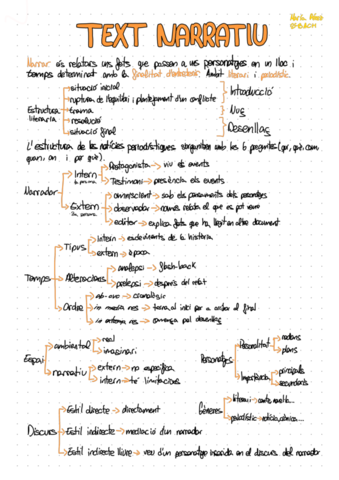 TEXT NARRATIU
Narrar és relatar uns fets que passen a uns personatges en un lloc i
temps determinat amb la finalitat d'entretenir. Àmbit literari i periodístic.
Estructura literaria
situació inicial
ruptura de l'equilibri i plantejament d'un conflicte
trama
resolució
situació final
Introducció
Nus
Desenllaç
L'estructura de les notícies periodístiques segueixen amb les 6 preguntes (qui, què, com
quan, on i per què).
Narrador
Intern
1a persona
Protagonista → viu els events
Testimoni → presència els events
Extern
3a persona
omniscient → sab els pensaments dels personatges
observador → només relata el que es pot veure
editor → explica fets que ha llegit en altre document
Temps
Tipus
intern → esdeveniments de la història
extern → època
Alteracions
analepsi → flash-back
prolepsi → després del relat
Ordre
ab-ovo → cronològic
in media res → trama, al inici per a arribar al final
in extrema res → comença pel desenllaç
Espai
ambiental
real
imaginari
narratiu
extern → no específica
intern → té limitacions
Personatges
Personalitat
rodons
plans
Importància
principals
secundaris
Discurs
Estil directe → directament
Estil indirecte → mediació d'un narrador
Estil indirecte lliure → veu d'un personatge inserida en el discurs del narrador
Gèneres
literari → conte, novel·la...
periodístic → notícia, crònica...